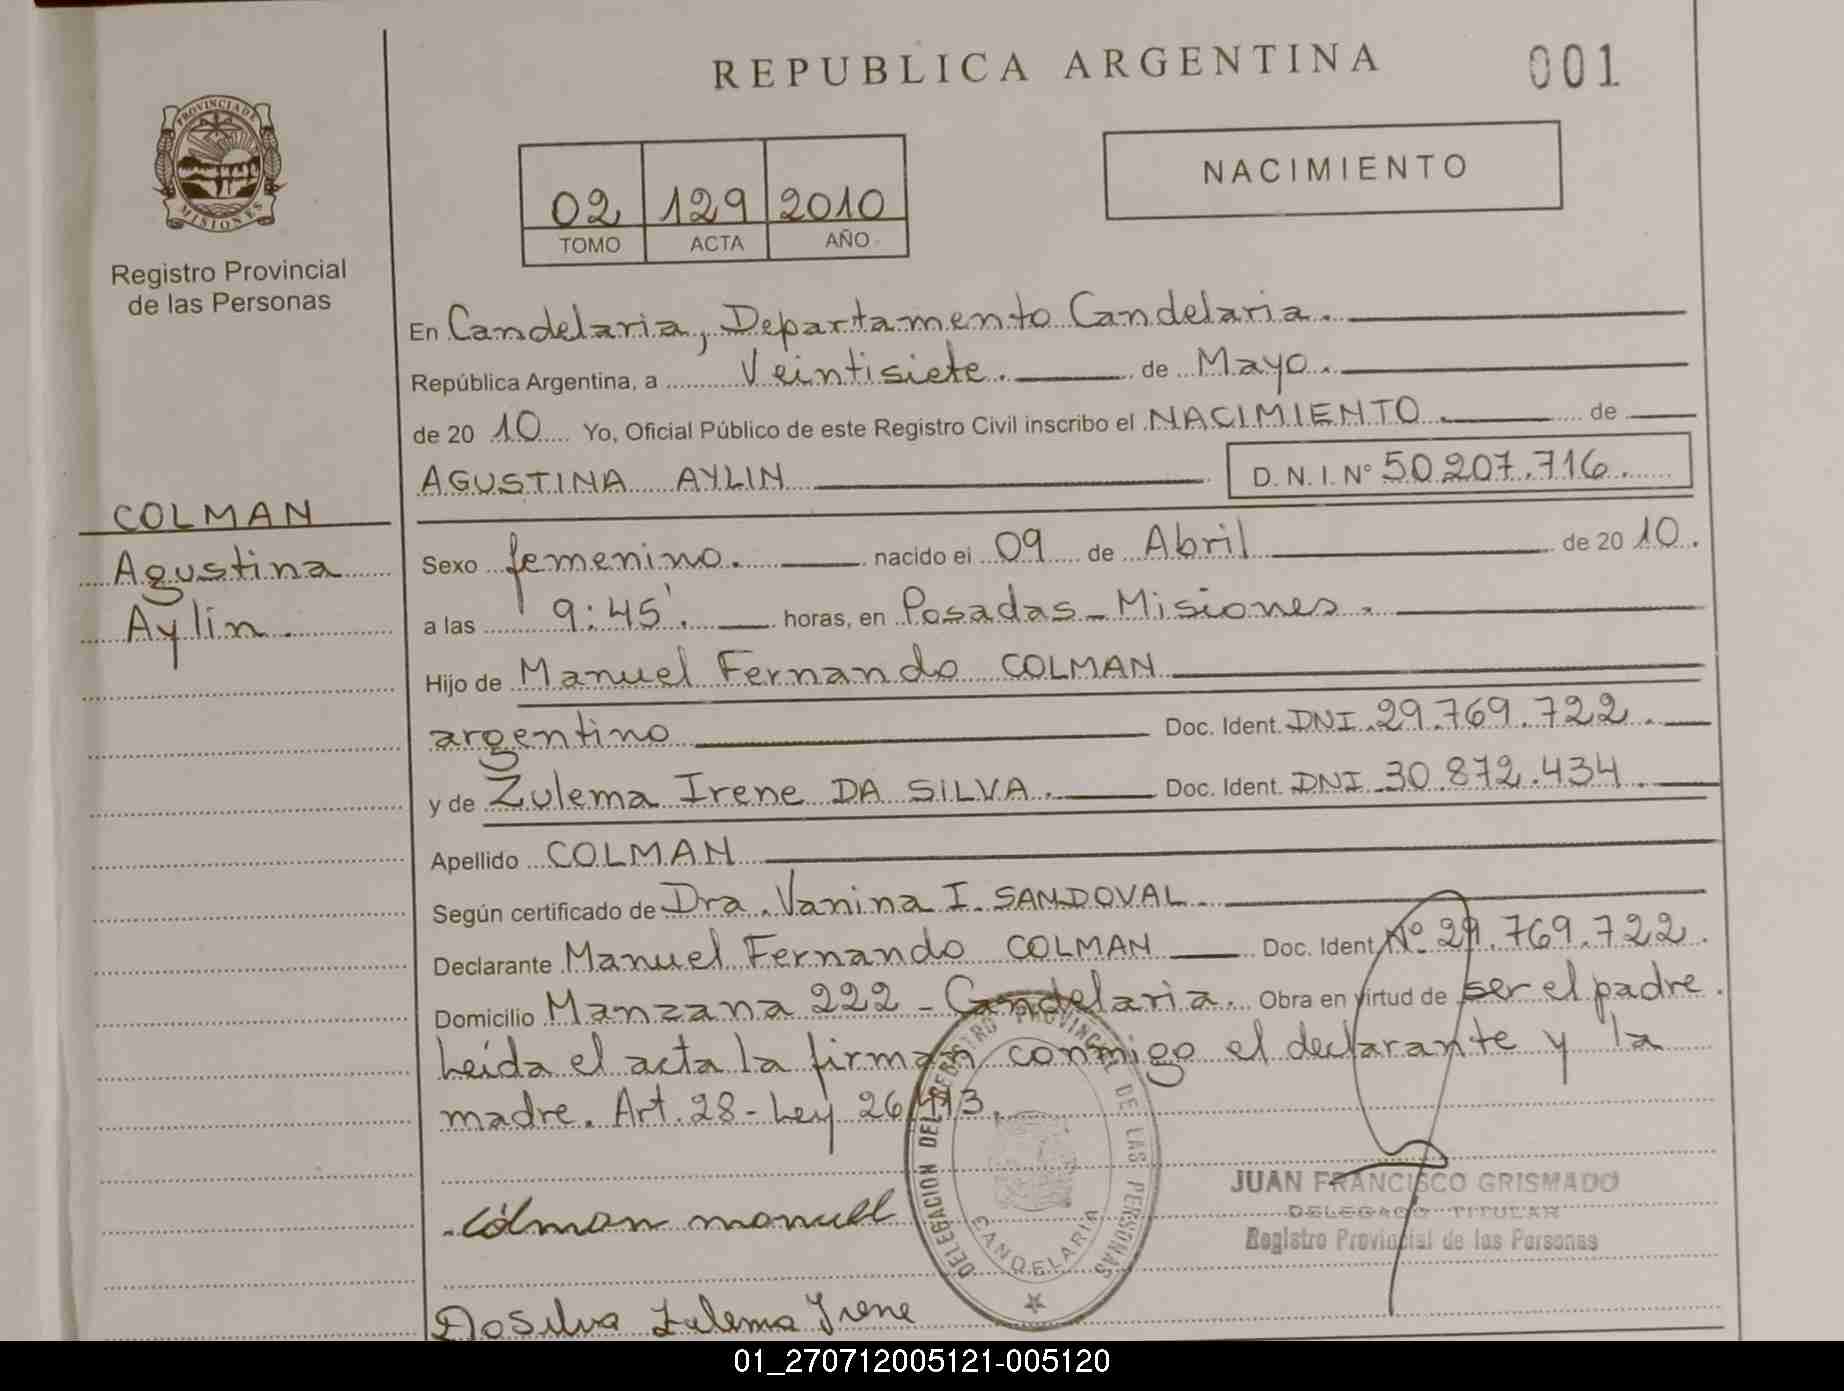 REPUBLICA ARGENTINA
001
PROVINCIA DE MISIONES
Registro Provincial
de las Personas
02 129 2010
TOMO ACTA AÑO
NACIMIENTO
En Candelaria, Departamento Candelaria.
República Argentina, a Veintisiete. de Mayo.
de 20 10 Yo, Oficial Público de este Registro Civil inscribo el NACIMIENTO de
AGUSTINA AYLIN D. N. I. Nº 50.207.716.
COLMAN
Agustina
Aylin.
Sexo femenino. nacido el 09 de Abril de 20 10.
a las 9:45'. horas, en Posadas - Misiones.
Hijo de Manuel Fernando COLMAN
argentino Doc. Ident. DNI. 29.769.722.
y de Zulema Irene DA SILVA. Doc. Ident. DNI. 30.872.434
Apellido COLMAN
Según certificado de Dra. Vanina I. SANDOVAL.
Declarante Manuel Fernando COLMAN Doc. Ident. Nº 29.769.722.
Domicilio Manzana 222 - Candelaria. Obra en virtud de ser el padre.
Leída el acta la firman conmigo el declarante y la
madre. Art. 28 - Ley 26.413.
DELEGACION DEL REGISTRO PROVINCIAL DE LAS PERSONAS
CANDELARIA
JUAN FRANCISCO GRISMADO
DELEGADO TITULAR
Registro Provincial de las Personas
Colman manuel
Da Silva Zulema Irene
01_270712005121-005120